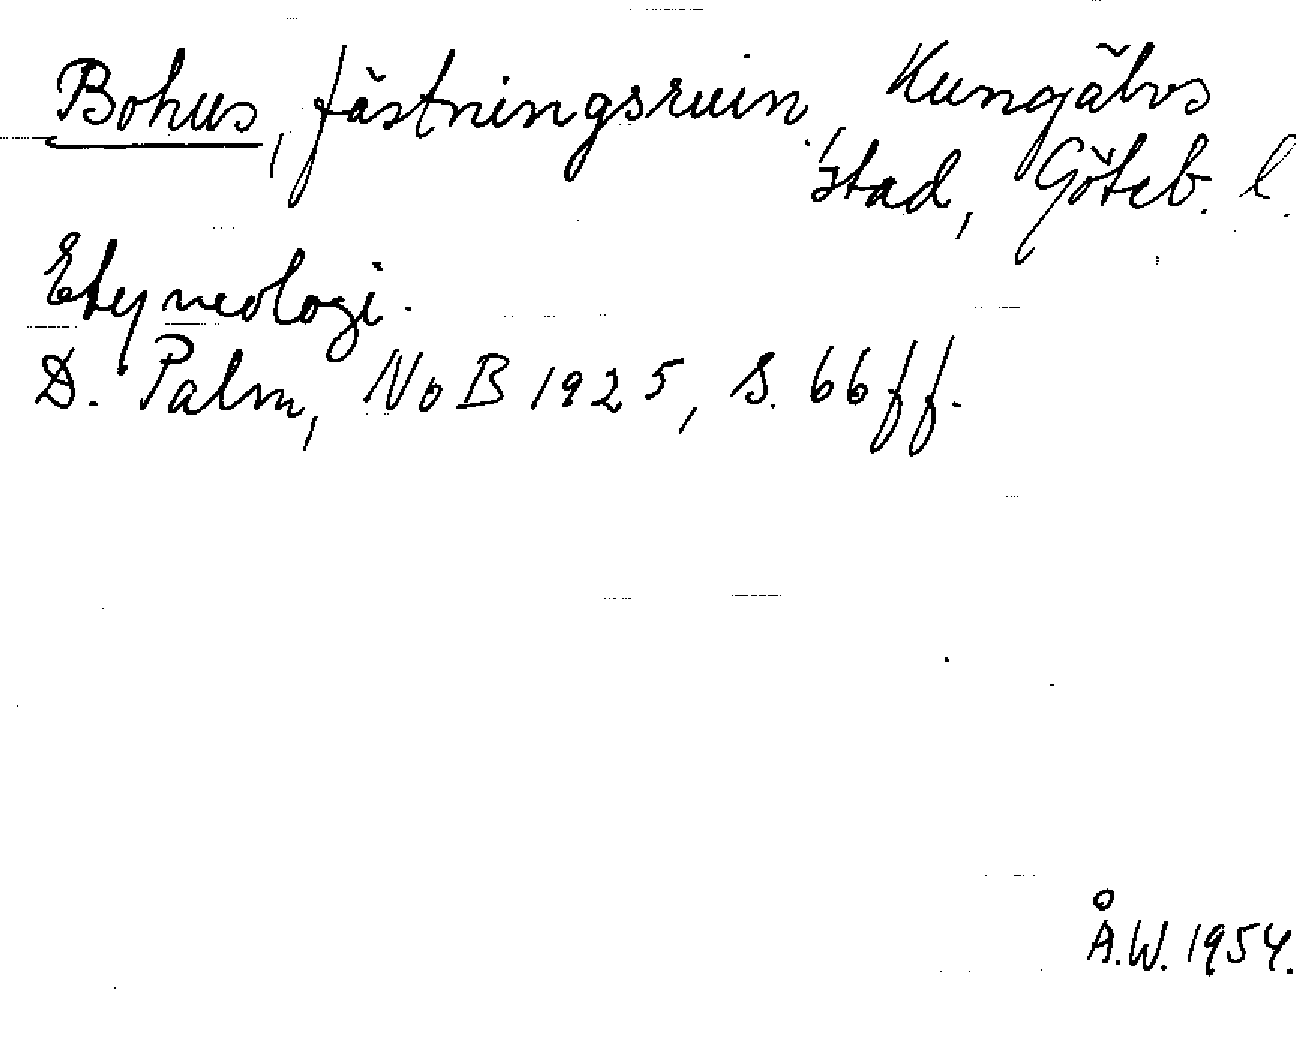 Bohus, fästningsruin, Kungälvs
stad, Göteb. l.
Etymologi.
D. Palm, NoB 1925, s. 66 ff.
Å.W. 1954.